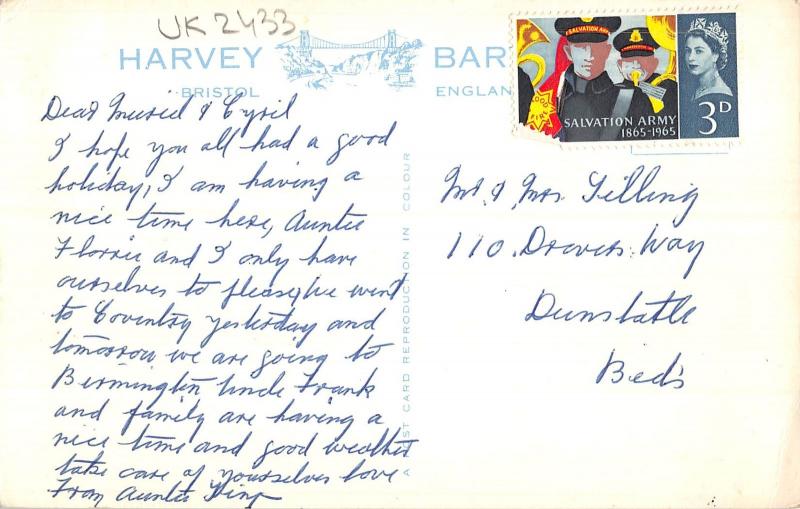 UK 2433
HARVEY BAR
BRISTOL ENGLAND
SALVATION ARMY
SALVATION ARMY
1865-1965
3D
Dear Muriel & Cyril
I hope you all had a good
holiday, I am having a
nice time here, Auntie
Florrie and I only have
ourselves to please, we went
to Coventry yesterday and
tomorrow we are going to
Birmington Uncle Frank
and family are having a
nice time and good weather
take care of yourselves love
From Auntie
A POST CARD REPRODUCTION IN COLOUR
Mr & Mrs Tilling
110, Drovers Way
Dunstable
Beds